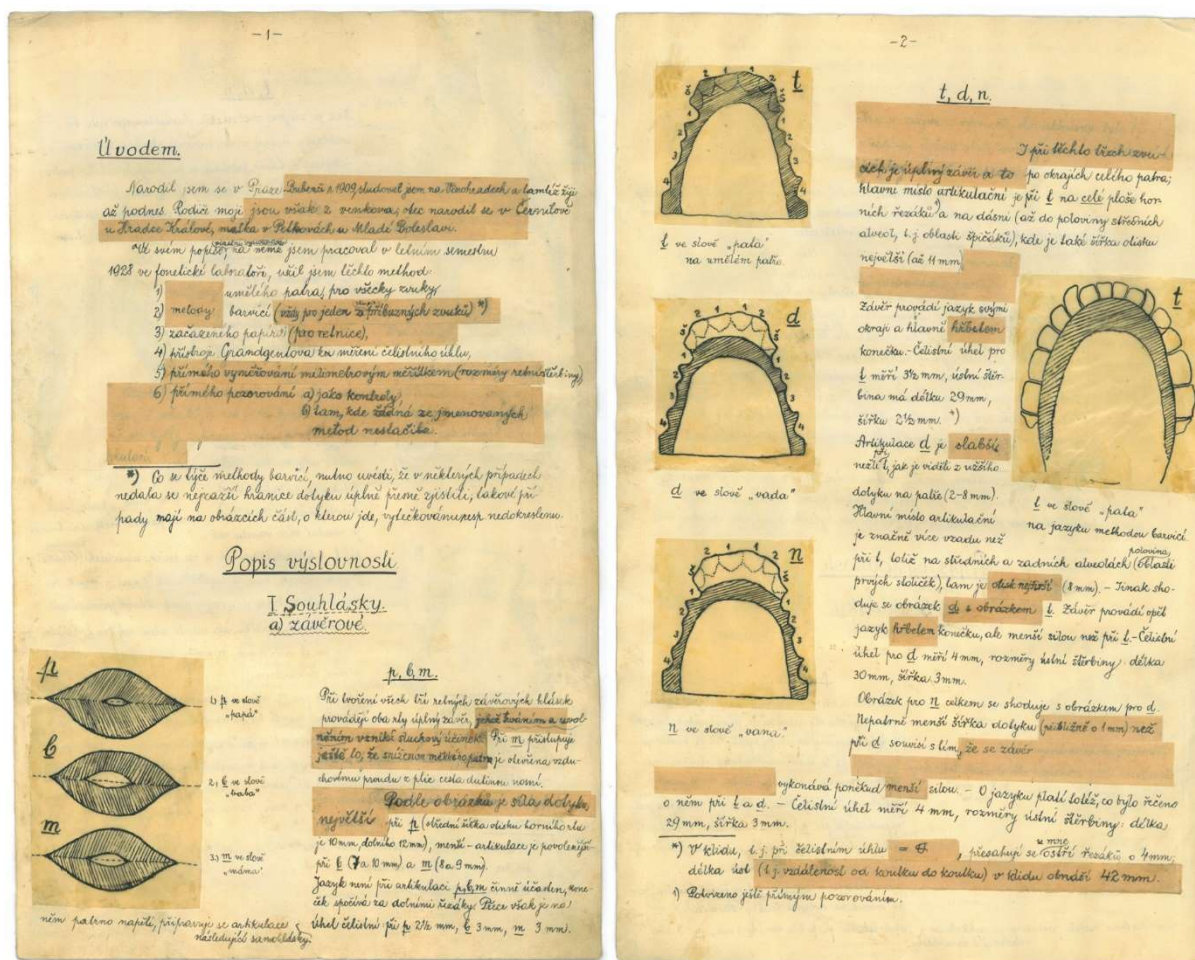 -1-
Úvodem.
Narodil jsem se v Praze-Bubenči r. 1909, studoval jsem na Vinohradech a tamtéž žiji
až podnes. Rodiči moji jsou však z venkova; otec narodil se v Černilově
u Hradce Králové, matka v Petkovách u Mladé Boleslavi.
Ve svém popise, na němž jsem pracoval v letním semestru
1928 ve fonetické laboratoři, užil jsem těchto method:
1) umělého patra, pro všecky zvuky,
2) metody barvicí (vždy pro jeden z příbuzných zvuků) *)
3) začazeného papíru (pro retnice),
4) přístroje Grandgentova ke měření čelistního úhlu,
5) přímého vyměřování milimetrovým měřítkem (rozměry retní štěrbiny),
6) přímého pozorování a) jako kontroly,
b) tam, kde žádná ze jmenovaných
metod nestačila.
*) Co se týče methody barvicí, nutno uvésti, že v některých případech
nedala se nejzazší hranice dotyku úplně přesně zjistiti; takové pří
pady mají na obrázcích část, o kterou jde, vytečkovánu resp. nedokreslenu.
Popis výslovnosti
I Souhlásky.
a) závěrové.
p
b
m
1.) p ve slově
"papá"
2.) b ve slově
"baba"
3.) m ve slově
"máma"
p, b, m.
Při tvoření všech tří retných závěrových hlásek
provádějí oba rty úplný závěr, jehož trváním a uvol-
něním vzniká sluchový účinek. Při m přistupuje
ještě to, že snížením měkkého patra je otevřena vzdu-
chovému proudu z plic cesta dutinou nosní.
Podle obrázků je síla dotyku
největší při p (střední šířka otisku horního rtu
je 10 mm, dolního 12 mm), menší - artikulace je povolenější-
při b (7 a 10 mm) a m (8 a 9 mm).
Jazyk není při artikulaci p, b, m činně účasten, kone-
ček spočívá za dolními řezáky. Přece však je na
něm patrno napětí, připravuje se artikulace
následující samohlásky.
Úhel čelistní při p 2½ mm, b 3 mm, m 3 mm.
-2-
2 1 1 2
š š
1 1
2 2
3 3
4 4
5 5
t
t ve slově "pata"
na umělém patře.
d
d ve slově "vada"
n
n ve slově "vana".
t, d, n.
I při těchto třech zvu
cích je úplný závěr a to po okrajích celého patra;
hlavní místo artikulační je při t na celé ploše hor-
ních řezáků a na dásni (až do poloviny středních
alveol, t.j. oblasti špičáků), kde je také šířka otisku
největší (až 11 mm).
Závěr provádí jazyk svými
okraji a hlavně hřbetem
konečku. - Čelistní úhel pro
t měří 3½ mm, ústní štěr-
bina má délku 29 mm,
šířku 2½ mm. *)
Artikulace d je slabší
než při t, jak je viděti z užšího
dotyku na patře (2-8 mm).
Hlavní místo artikulační
je značně více vzadu než
při t, totiž na středních a zadních alveolách (polovina oblasti
prvých stoliček), tam je otisk nejširší (8 mm). - Jinak sho-
duje se obrázek d s obrázkem t. Závěr provádí opět
jazyk hřbetem konečku, ale menší silou než při t. - Čelistní
úhel pro d měří 4 mm, rozměry ústní štěrbiny: délka
30 mm, šířka 3 mm.
t
t ve slově "pata"
na jazyku methodou barvicí
Obrázek pro n celkem se shoduje s obrázkem pro d.
Nepatrně menší šířka dotyku (přibližně o 1 mm) než
při d souvisí s tím, že se závěr
vykonává poněkud menší silou. - O jazyku platí totéž, co bylo řečeno
o něm při t a d. - Čelistní úhel měří 4 mm, rozměry ústní štěrbiny: délka
29 mm, šířka 3 mm.
*) V klidu, t.j. při čelistním úhlu = 0, přesahují se u mne ostří řezáků o 4 mm;
délka úst (t.j. vzdálenost od koutku do koutku) v klidu obnáší 42 mm.
1) Potvrzeno ještě přímým pozorováním.